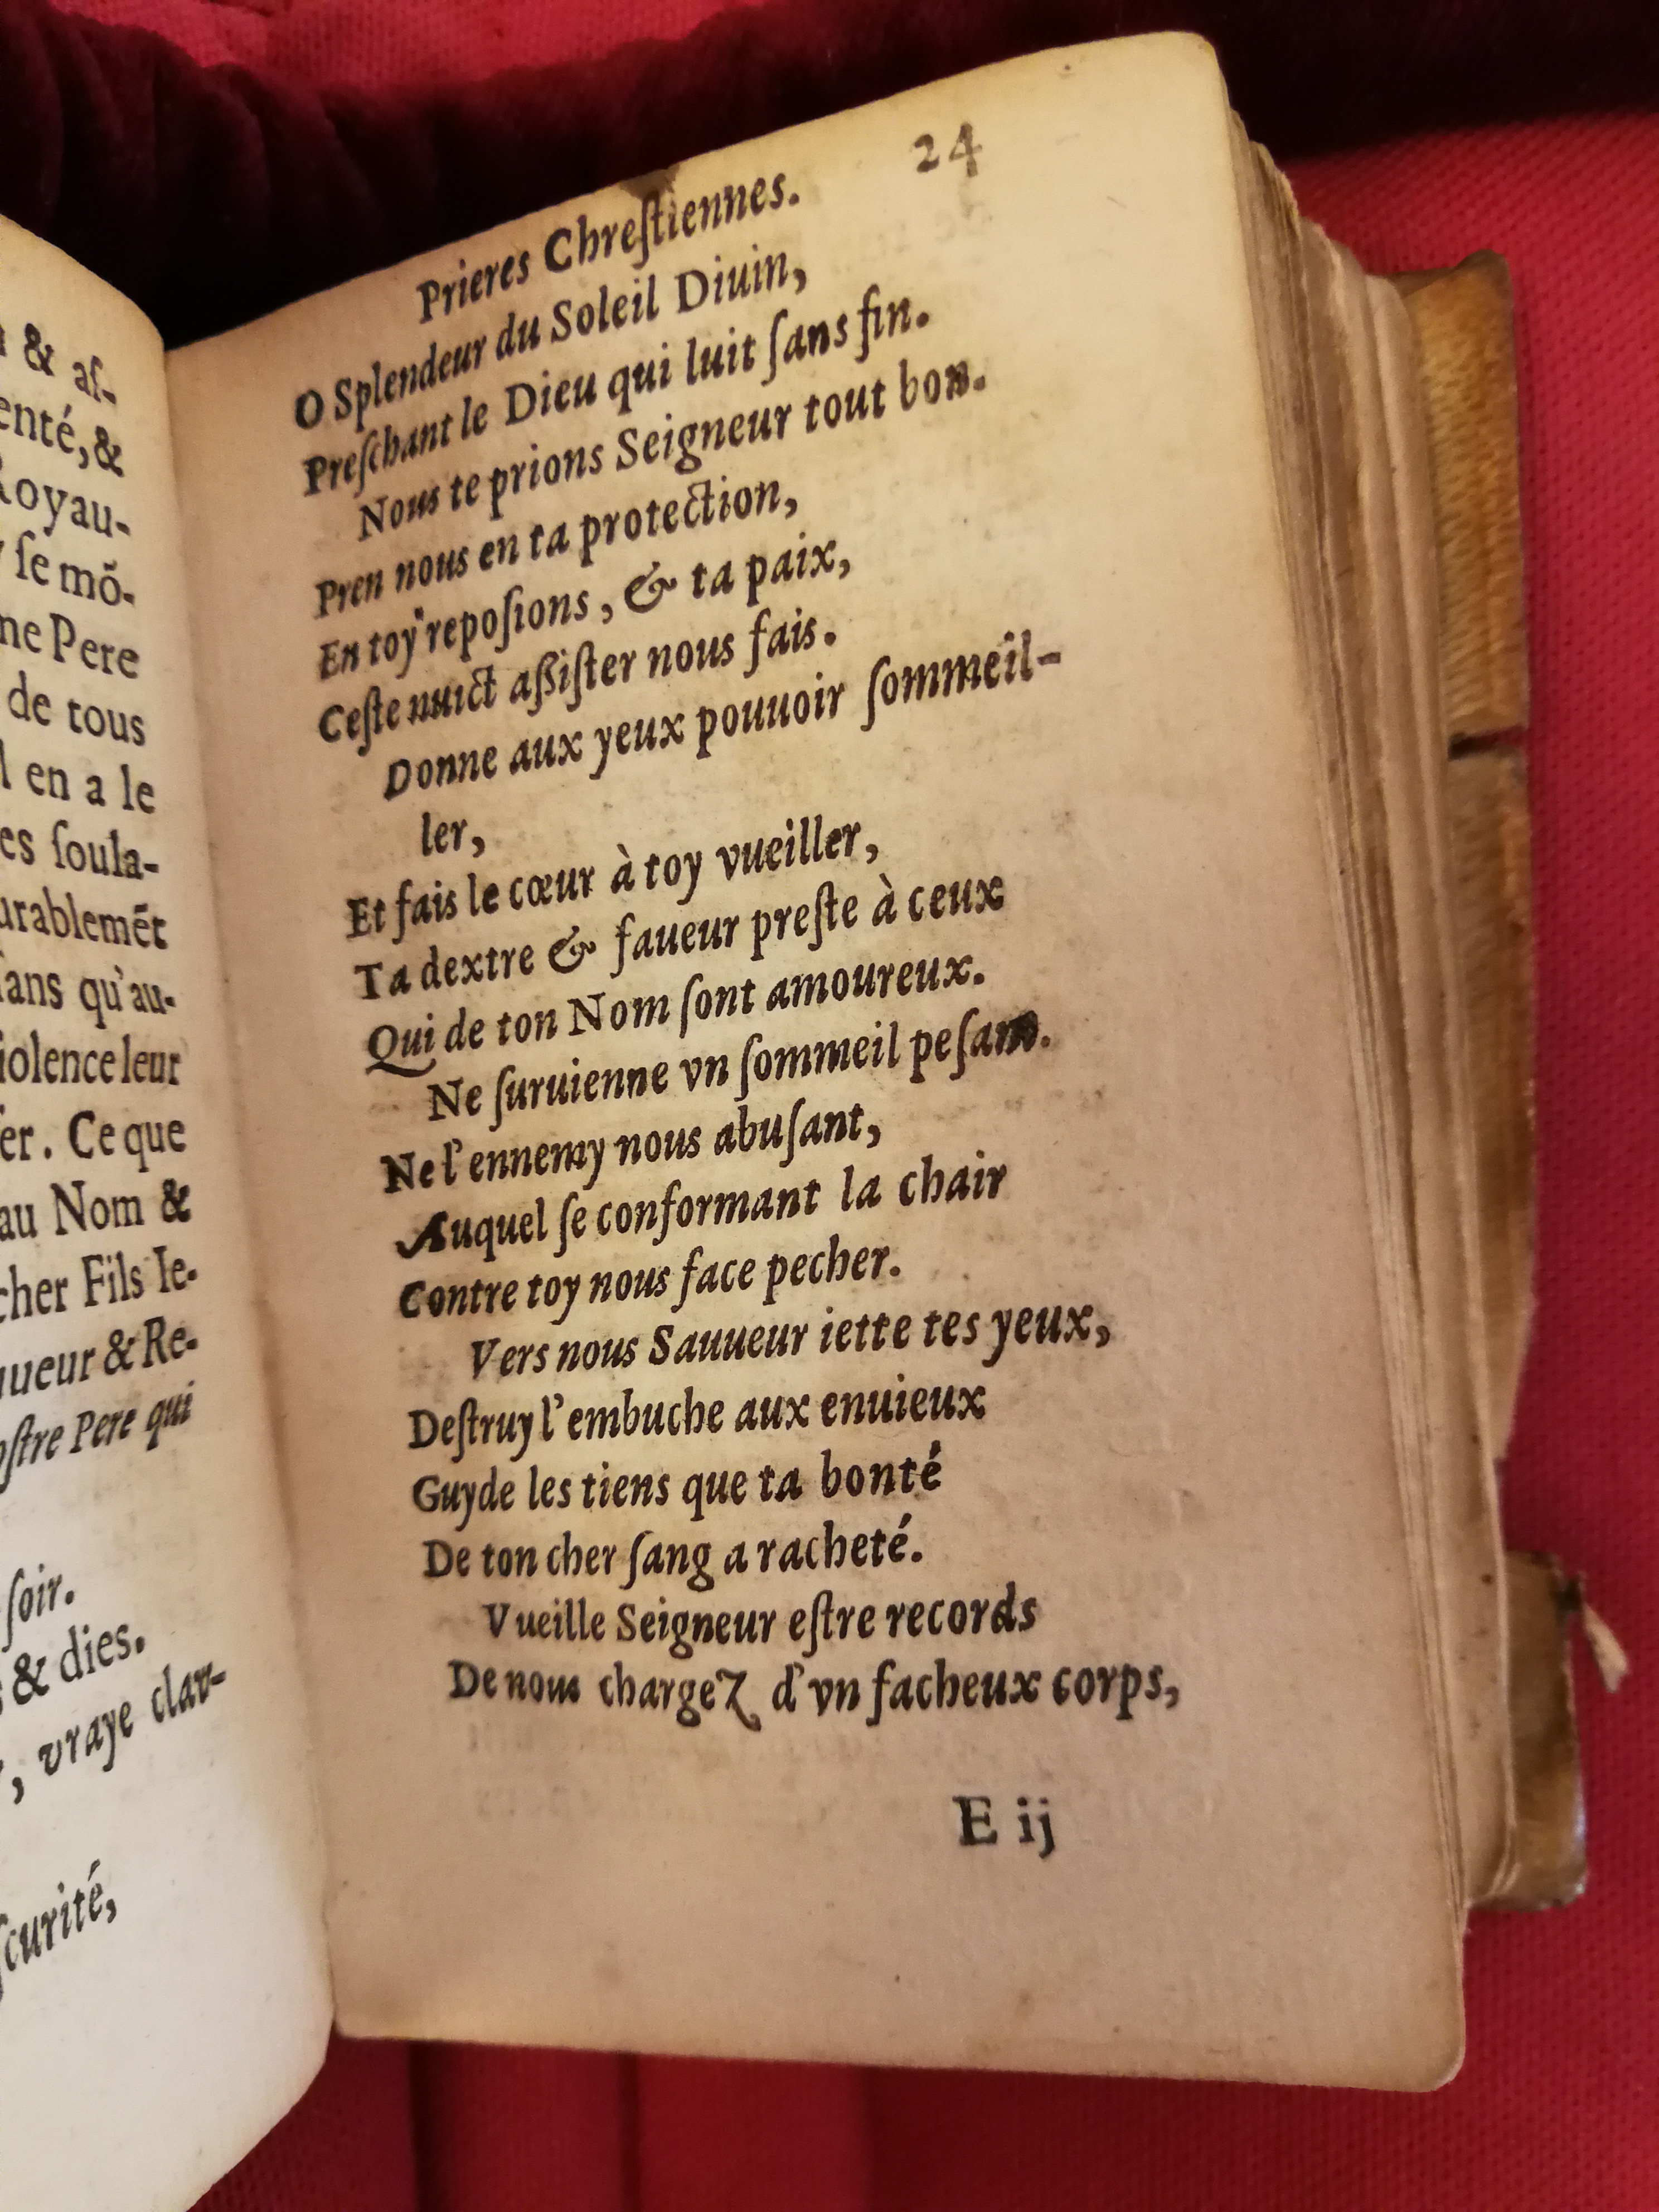 & aſ-
enté, &
Royau-
ſe mõ-
me Pere
de tous
en a le
es ſoula-
urablemẽt
ſans qu'au-
iolence leur
er. Ce que
au Nom &
cher Fils Ie-
ueur & Re-
oſtre Pere qui
ſoir.
& dies.
, vraye clar-
ſcurité,
Prieres Chreſtiennes. 24
O Splendeur du Soleil Diuin,
Preſchant le Dieu qui luit ſans fin.
Nous te prions Seigneur tout bon.
Pren nous en ta protection,
En toy repoſions, & ta paix,
Ceſte nuict aßiſter nous fais.
Donne aux yeux pouuoir ſommeil-
ler,
Et fais le cœur à toy vueiller,
Ta dextre & faueur preſte à ceux
Qui de ton Nom ſont amoureux.
Ne ſuruienne vn ſommeil peſant.
Ne l'ennemy nous abuſant,
Auquel ſe conformant la chair
Contre toy nous face pecher.
Vers nous Sauueur iette tes yeux,
Deſtruy l'embuche aux enuieux
Guyde les tiens que ta bonté
De ton cher ſang a racheté.
Vueille Seigneur eſtre records
De nous chargez d'vn facheux corps,
E ij